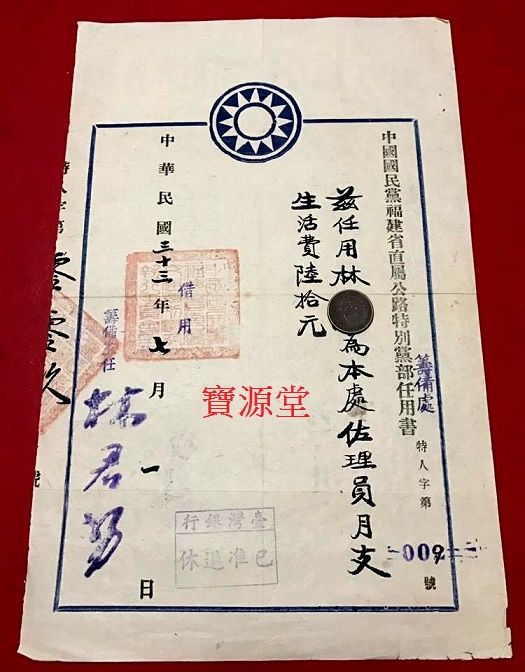 中國國民黨福建省直屬公路特別黨部任用書
籌備處
特人字第009號
茲任用林
為本處佐理員月支
生活費陸拾元
中華民國三十三年七月一日
借用
籌備主任
林君
特人字第零零玖號
寶源堂
臺灣銀行
已准退休